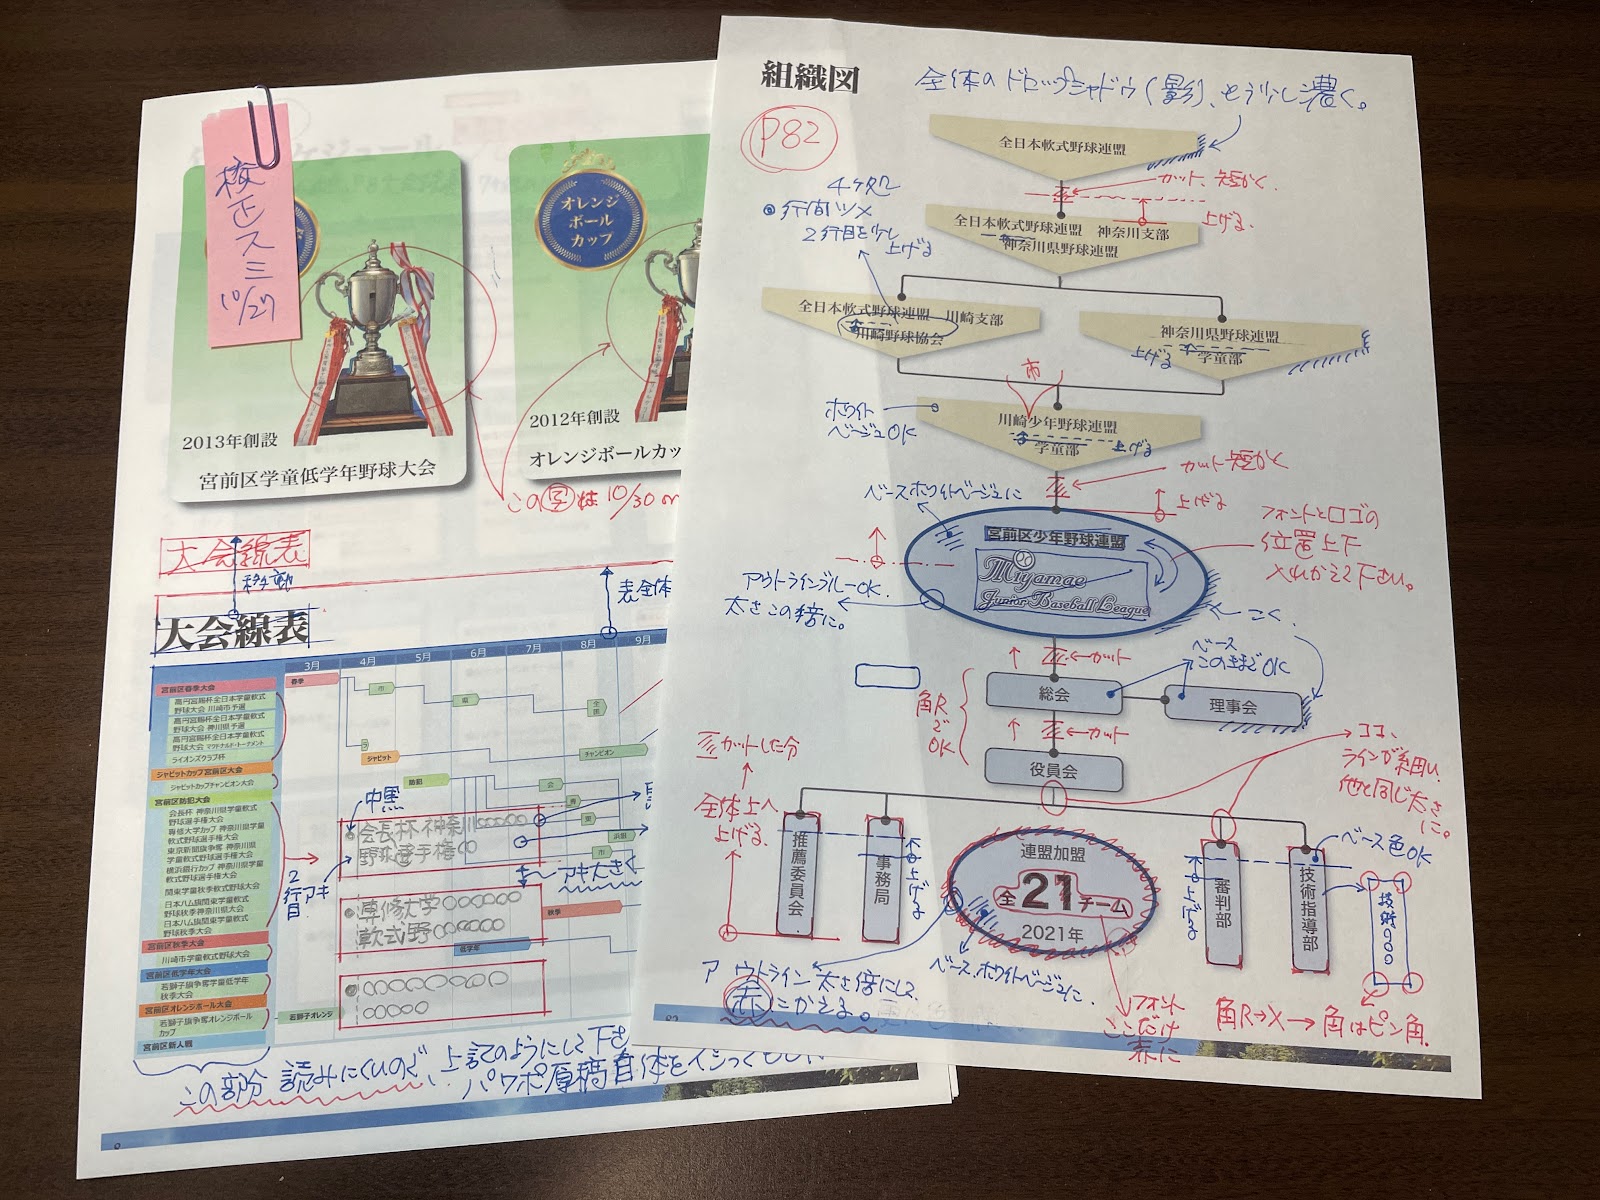 校正スミ
10/27
オレンジ
ボール
カップ
2013年創設
宮前区学童低学年野球大会
2012年創設
オレンジボールカッ
この
は10/30
大会線表
移動
表全体
大会線表
3月 4月 5月 6月 7月 8月 9月
宮前区春季大会
高円宮賜杯全日本学童軟式
野球大会 川崎市予選
高円宮賜杯全日本学童軟式
野球大会 神川県予選
高円宮賜杯全日本学童軟式
野球大会 マクドナルド・トーナメント
ライオンズクラブ杯
ジャビットカップ宮前区大会
ジャビットカップチャンピオン大会
宮前区防犯大会
会長杯 神奈川県学童軟式
野球選手権大会
専修大学カップ 神奈川県学童
軟式野球選手権大会
東京新聞旗争奪 神奈川県
学童軟式野球選手権大会
横浜銀行カップ 神奈川県学童
軟式野球選手権大会
関東学童秋季軟式野球大会
日本ハム旗関東学童軟式
野球秋季神奈川県大会
日本ハム旗関東学童軟式
野球秋季大会
宮前区秋季大会
川崎市学童軟式野球大会
宮前区低学年大会
若獅子旗争奪学童低学年
秋季大会
宮前区オレンジボール大会
若獅子旗争奪オレンジボール
カップ
宮前区新人戦
春季
市
県
全国
ラ
ジャビット
チャンピオン
防犯
会
専
東
浜銀
市
秋季
低学年
若獅子オレンジ
中黒
2行目
アキ
会長杯 神奈川○○○○○
野球選手権○○
アキ大きく
専修大学○○○○○○
軟式野○○○○○○
この部分 読みにくいので、上記のようにして下さ
パワポ原稿自体を
組織図
P82
全体のドロップシャドウ(影)、もう少し濃く。
全日本軟式野球連盟
カット、短かく。
上げる.
4ヶ処
行間ツメ
2行目を少し
上げる
全日本軟式野球連盟 神奈川支部
神奈川県野球連盟
全日本軟式野球連盟 川崎支部
川崎野球協会
神奈川県野球連盟
学童部
上げる
市
川崎少年野球連盟
学童部
上げる
ホワイト
ベージュOK
カット 短かく
上げる
ベースホワイトベージュに
宮前区少年野球連盟
Miyamae
Junior Baseball League
フォントとロゴの
位置上下
入れかえて下さい。
アウトラインブルーOK.
太さこの倍に。
こく、
カット
ベース
このままでOK
総会
理事会
角R
で
OK
カット
役員会
ココ、
ラインが細い.
他と同じ太さ
に。
カットした分
全体上へ
上げる.
推薦委員会
事務局
上げる
連盟加盟
全21チーム
2021年
審判部
上げる
技術指導部
ベース色OK
技術○○○
ベース、ホワイトベージュに.
アウトライン 太さ倍にして
赤にかえる。
フォント
ここだけ
赤に
角R→X→角はピン角.